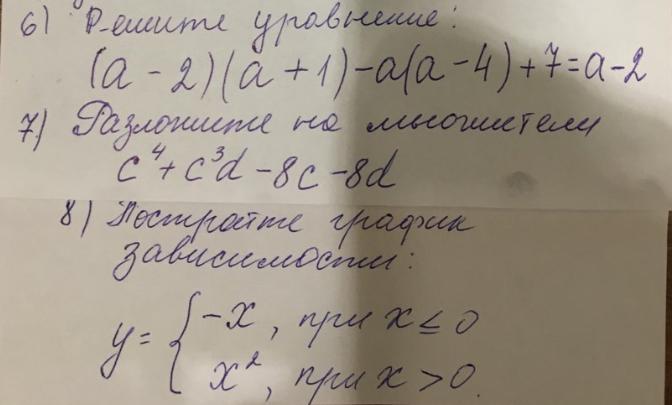 6) Решите уравнение:
(a - 2)(a + 1) - a(a - 4) + 7 = a - 2
7.) Разложите на множители
c⁴ + c³d - 8c - 8d
8) Постройте график
зависимости:
y = { -x, при x ≤ 0
x², при x > 0.